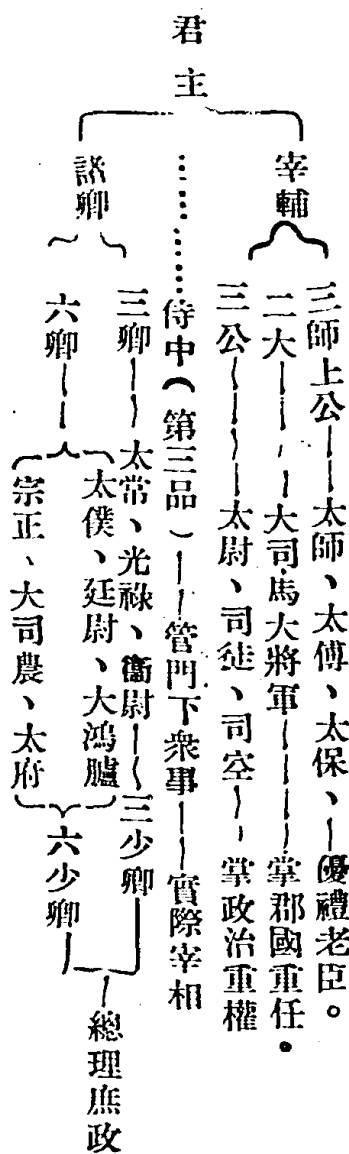 君主
宰輔
三師上公——太師、太傅、太保、—優禮老臣。
二大——大司馬大將軍———掌郡國重任。
三公———太尉、司徒、司空——掌政治重權
………侍中（第三品）——管門下衆事——實際宰相
諸卿
三卿——太常、光祿、衞尉——三少卿
六卿——太僕、廷尉、大鴻臚
宗正、大司農、太府
六少卿
總理庶政